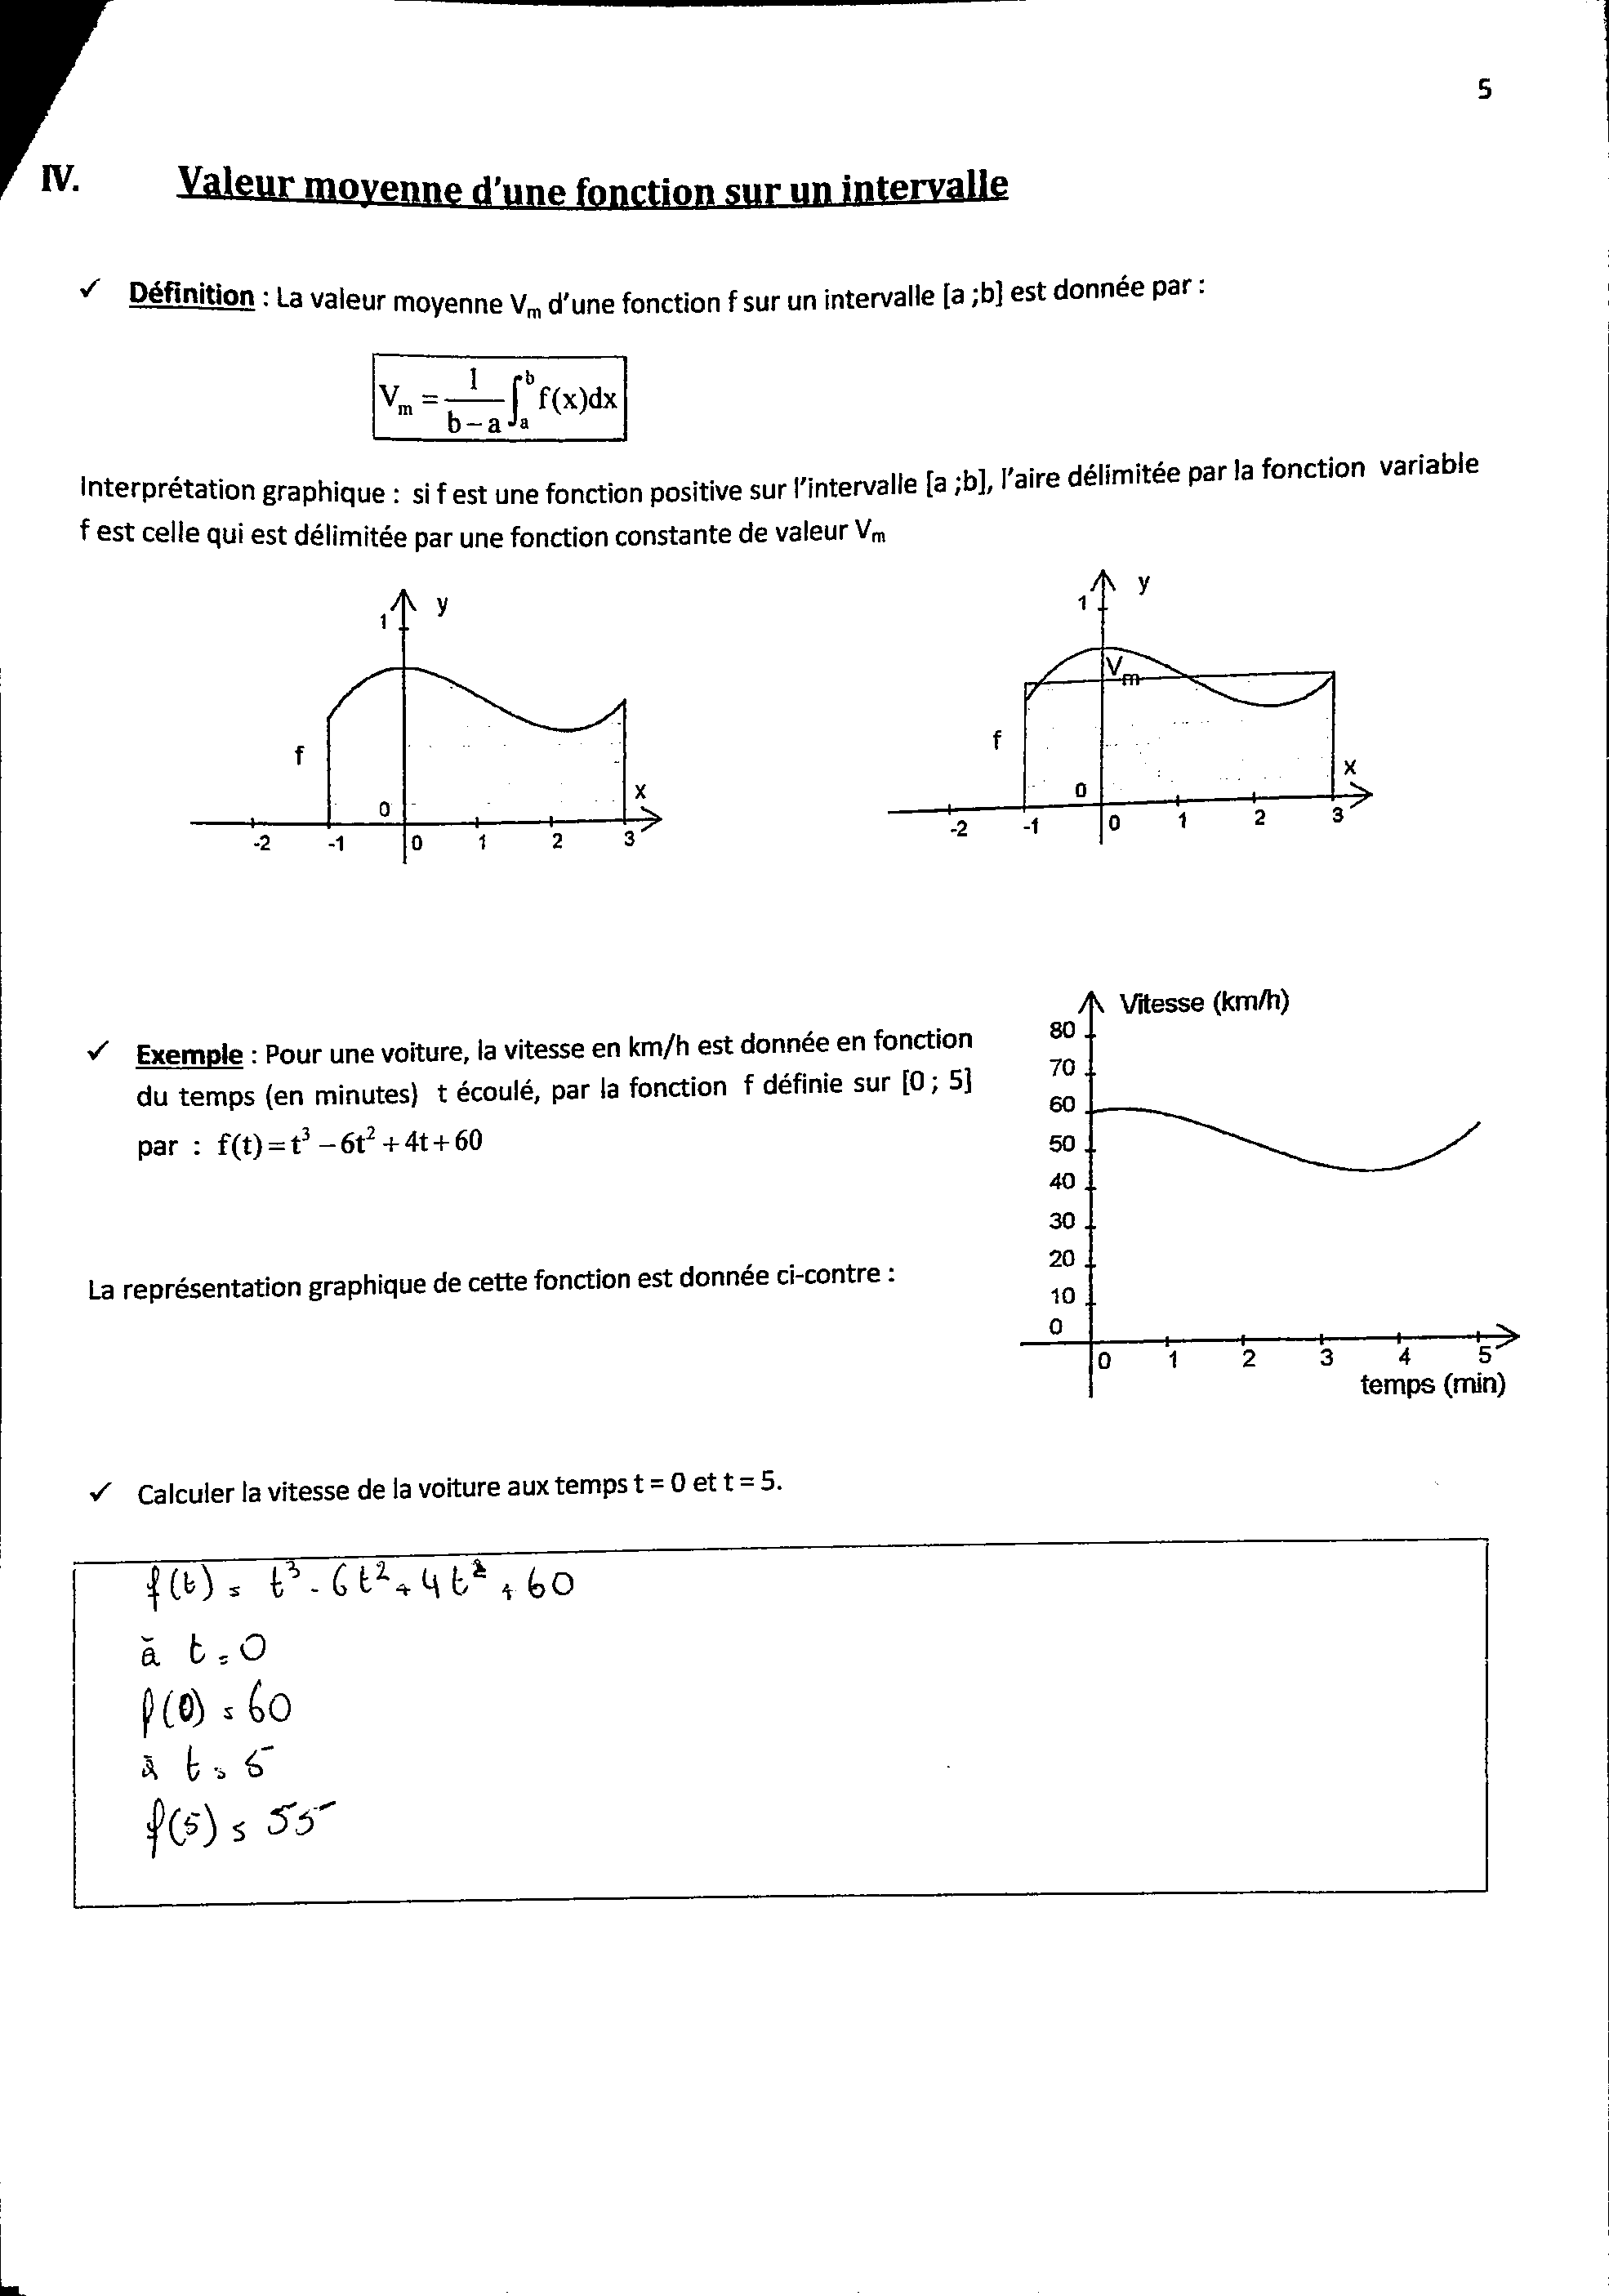 5
IV. Valeur moyenne d'une fonction sur un intervalle
✓ Définition : La valeur moyenne Vm d'une fonction f sur un intervalle [a ;b] est donnée par :
Vm = 1/(b – a) ∫_a^b f(x)dx
Interprétation graphique : si f est une fonction positive sur l'intervalle [a ;b], l'aire délimitée par la fonction variable
f est celle qui est délimitée par une fonction constante de valeur Vm
y
1
f
0
x
-2 -1 0 1 2 3
y
1
Vm
f
0
x
-2 -1 0 1 2 3
✓ Exemple : Pour une voiture, la vitesse en km/h est donnée en fonction
du temps (en minutes) t écoulé, par la fonction f définie sur [0 ; 5]
par : f(t) = t³ – 6t² + 4t + 60
La représentation graphique de cette fonction est donnée ci-contre :
Vitesse (km/h)
80
70
60
50
40
30
20
10
0
0 1 2 3 4 5
temps (min)
✓ Calculer la vitesse de la voiture aux temps t = 0 et t = 5.
f(t) = t³ - 6t² + 4t + 60
à t = 0
f(0) = 60
à t = 5
f(5) = 55